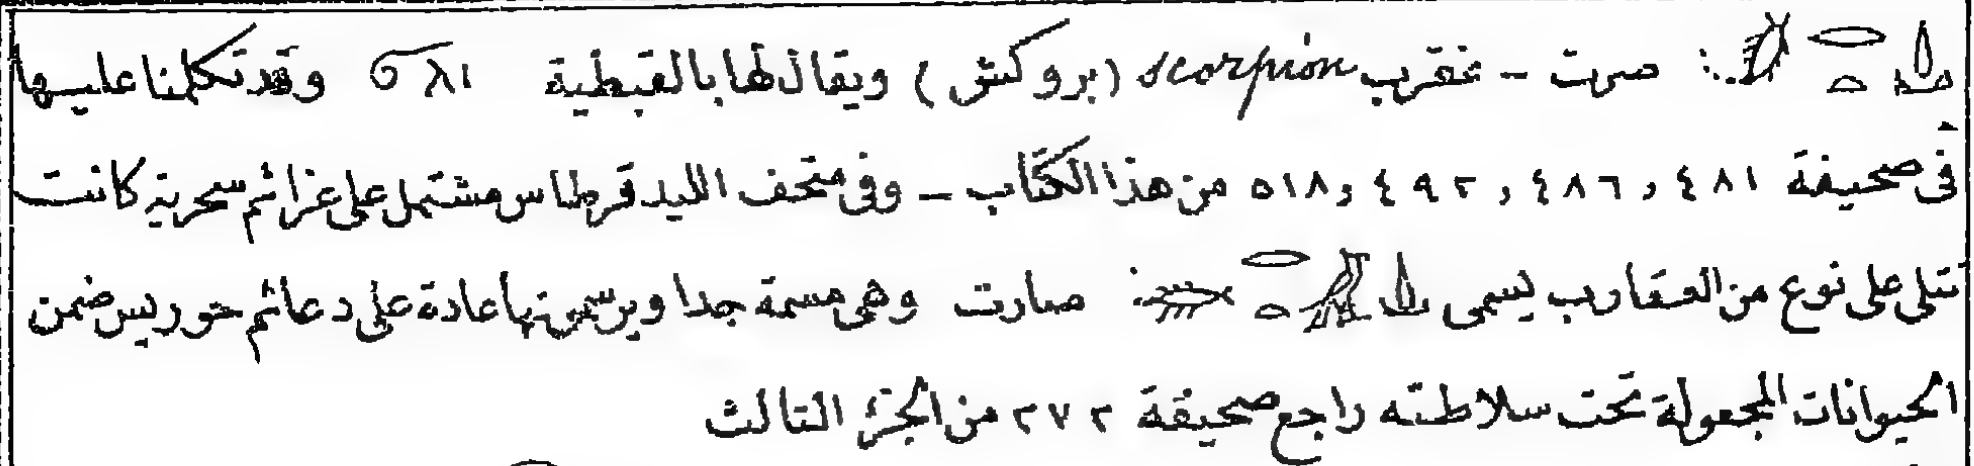 : صرت – عقرب scorpion (بروكش) ويقال لها بالقبطية ϭλι وقد تكلمنا عليها
فى صحيفة ٤٨١ ، ٤٨٦ ، ٤٩٢ ، ٥١٨ من هذا الكتاب – وفى متحف الليد قرطاس مشتمل على عزائم سحرية كانت
تتلى على نوع من العقارب يسمى صارت وهى مسمة جدا ويرسمونها عادة على دعائم حوريس ضمن
الحيوانات المجعولة تحت سلاطته راجع صحيفة ٢٧٢ من الجزء الثالث